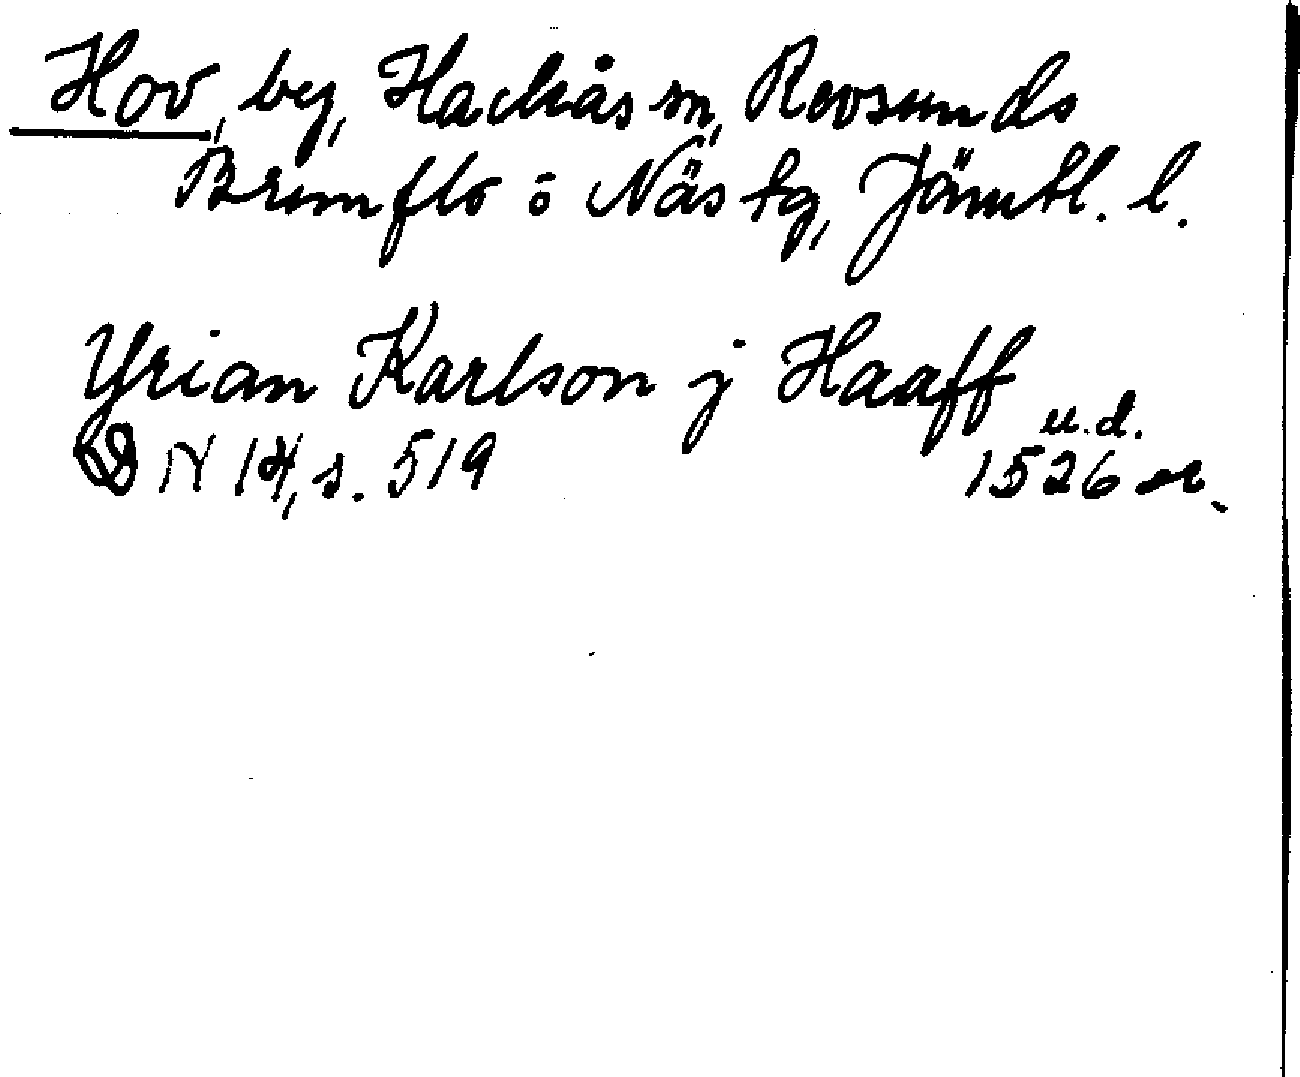 Hov, by, Hackås sn, Revsunds
Brunflo o Näs tg, Jämtl. l.
Yrian Karlson j Haaff
u.d.
DN 14, s. 519 1526 or.